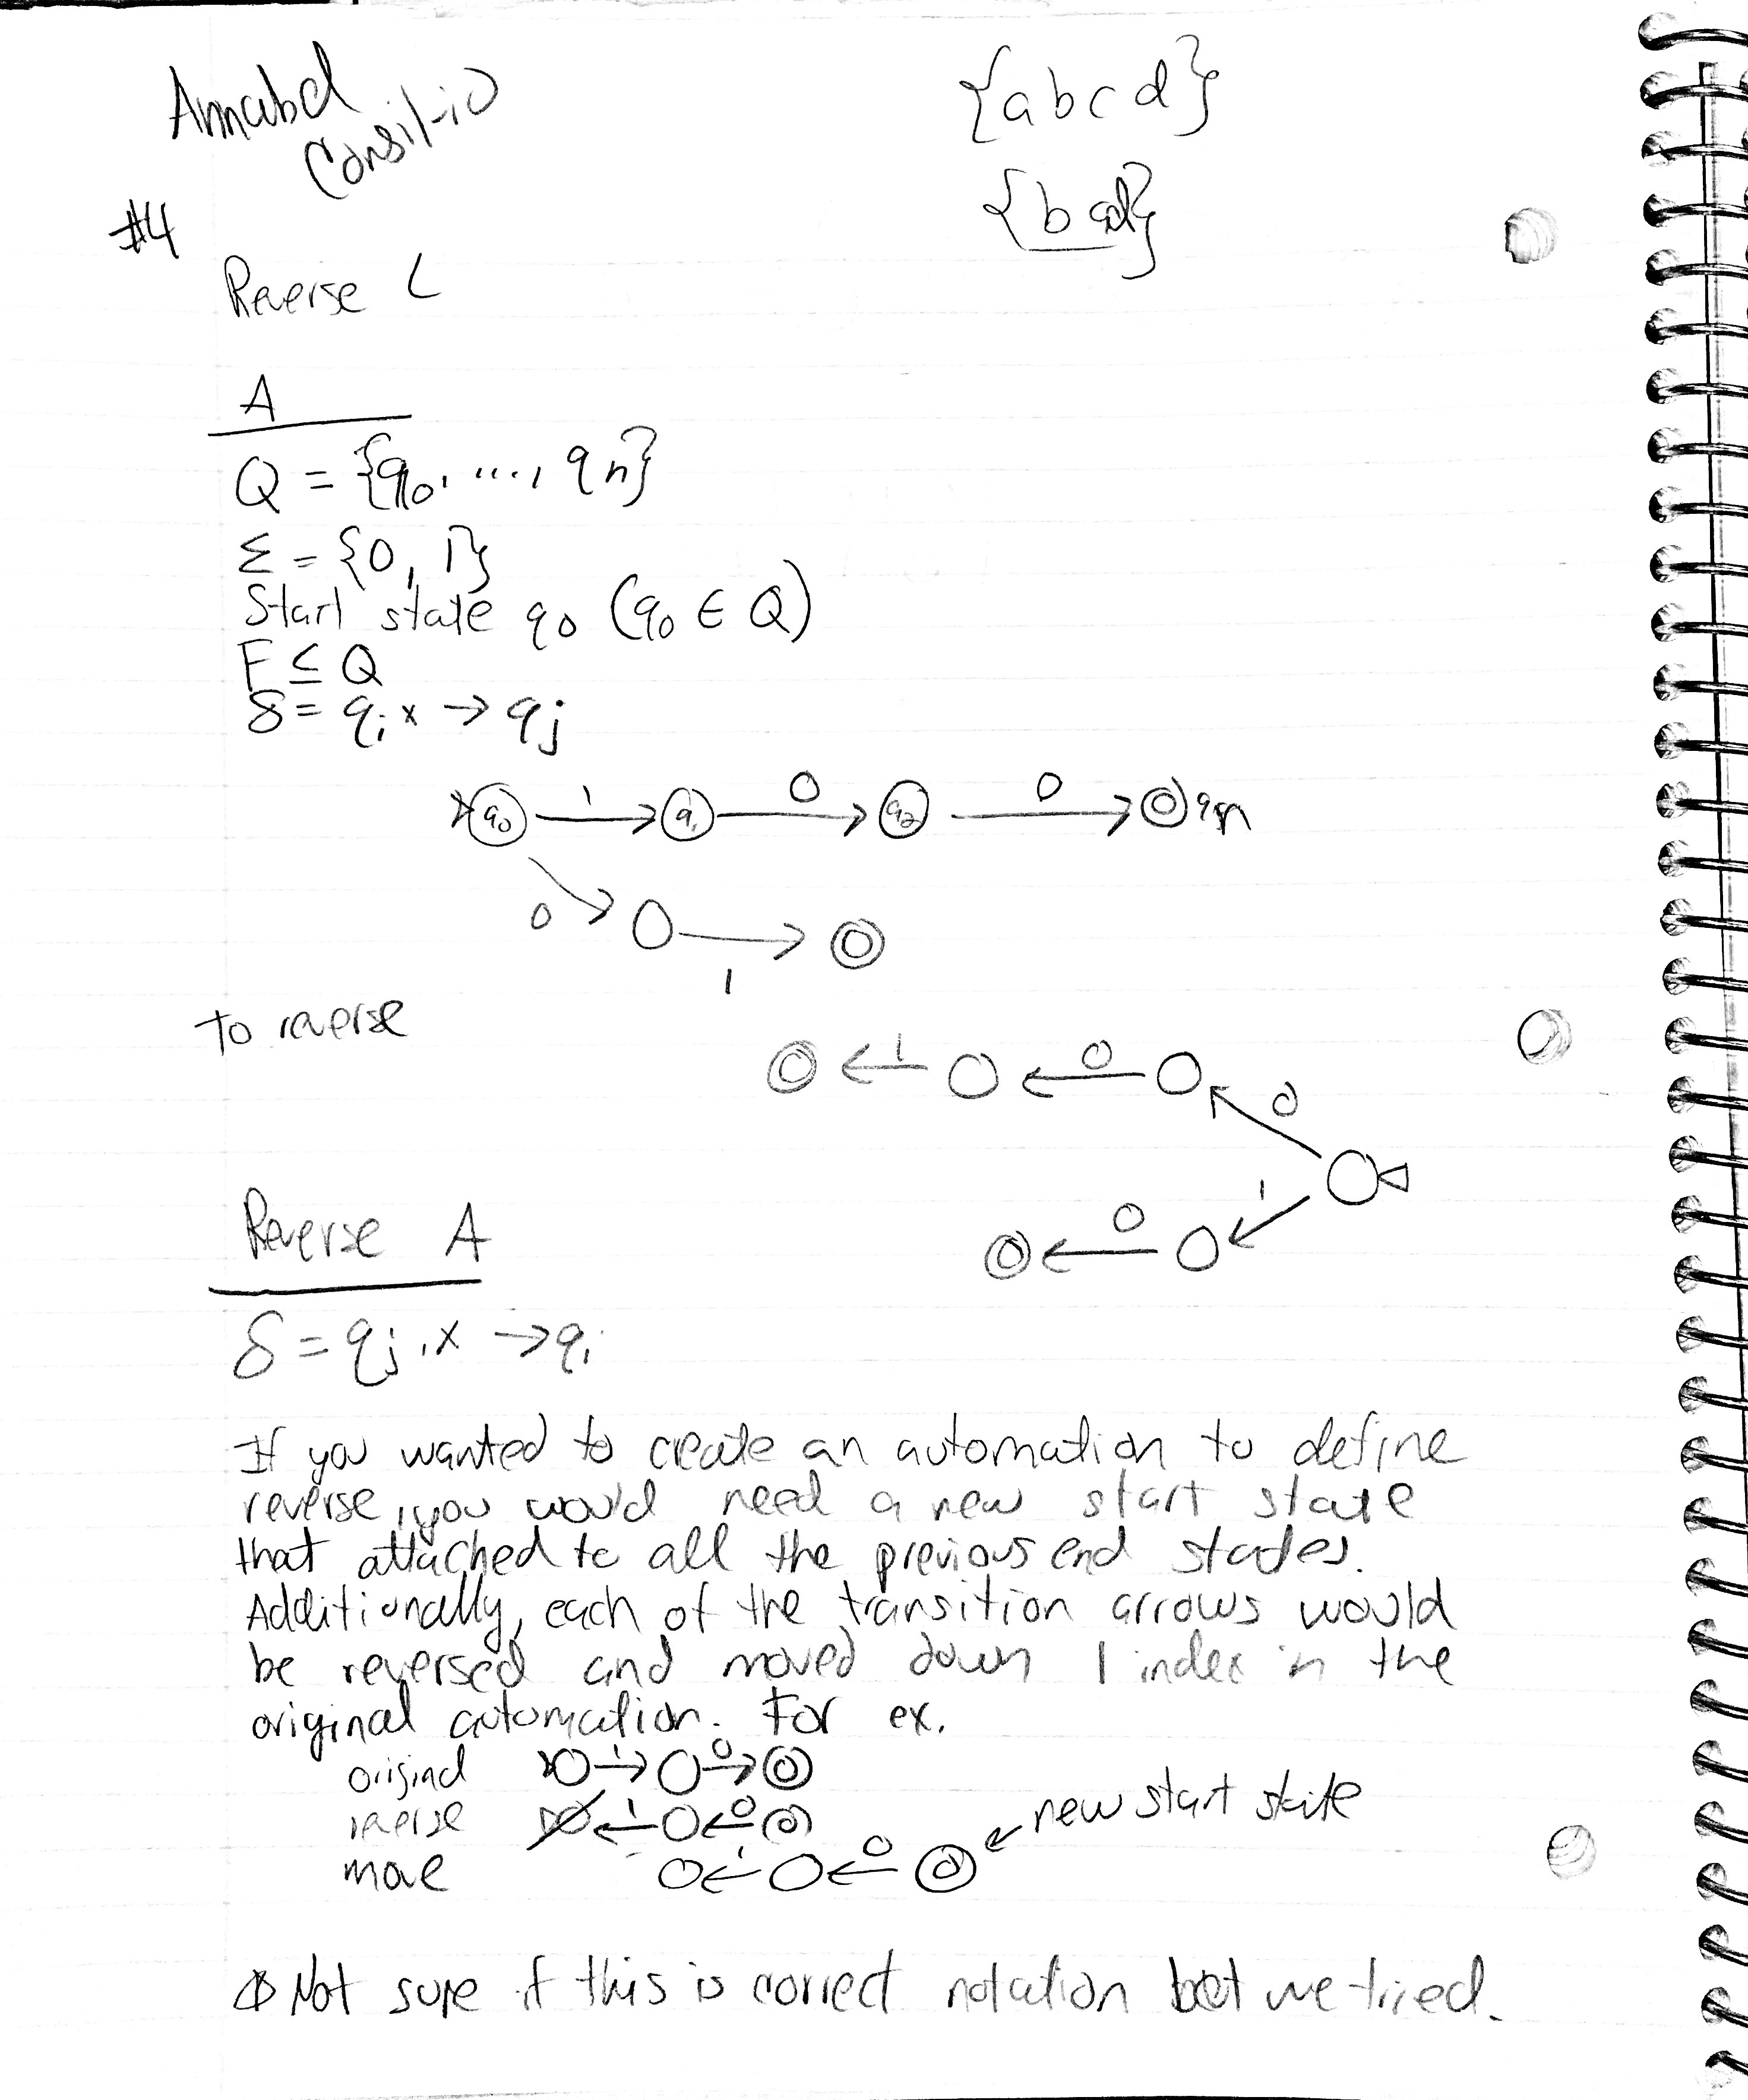 Annabel
{abcd}
#4
Reverse L
A
Q = {q0, ..., qn}
Σ = {0, 1}
Start state q0 (q0 ∈ Q)
F ⊆ Q
δ = qi x → qj
q0 1 q1 0 q2 0 qn
0 1
To reverse
1 0 0
1
0
Reverse A
δ = qj, x → qi
If you wanted to create an automation to define
reverse, you would need a new start state
that attached to all the previous end states.
Additionally, each of the transition arrows would
be reversed and moved down 1 index in the
original automation. For ex.
original 1 0
reverse 1 0
move 1 0 new start state
Not sure if this is correct notation but we tried.